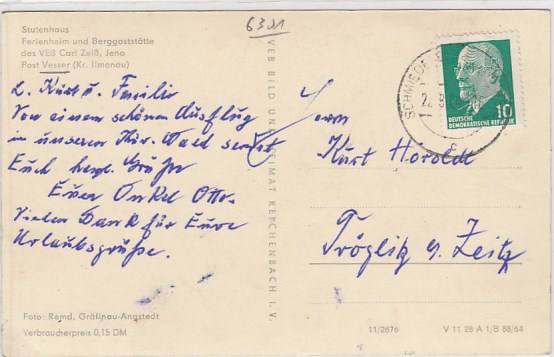 6301
Stutenhaus
Ferienheim und Berggaststätte
des VEB Carl Zeiß, Jena
Post Vesser (Kr. Ilmenau)
L. Kurt u. Familie
Von einem schönen Ausflug
in unseren Thür. Wald sendet
Euch herzl. Grüße
Euer Onkel Otto.
Vielen Dank für Eure
Urlaubsgrüße.
Foto: Remd, Gräfinau-Angstedt
Verbraucherpreis 0,15 DM
VEB BILD UND HEIMAT REICHENBACH I. V.
SCHMIEDEF
10
DEUTSCHE
DEMOKRATISCHE REPUBLIK
c
Herrn
Kurt Heroldt
Tröglitz b. Zeitz
11/2676
V 11 28 A 1/B 88/64